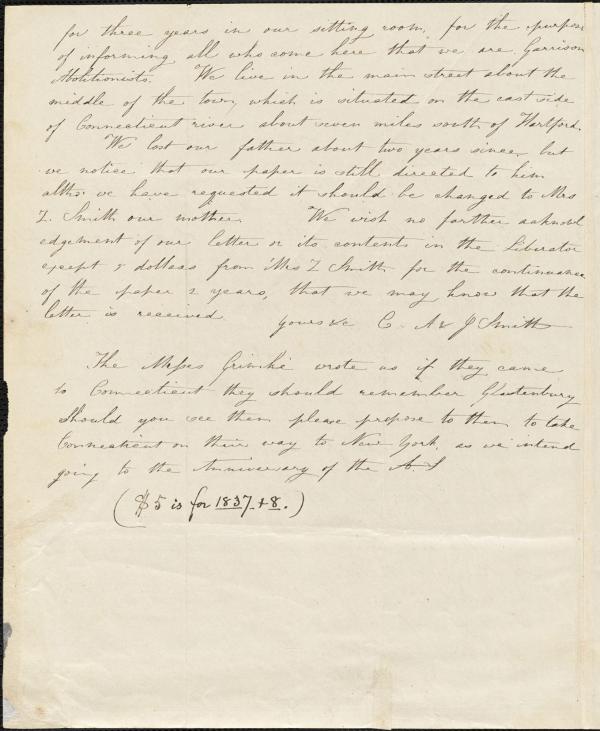 for three years in our sitting room, for the purpose
of informing all who come here that we are Garrison
Abolitionists. We live in the main street about the
middle of the town, which is situated on the east side
of Connecticut river about seven miles south of Hartford.
We lost our father about two years since, but
we notice that our paper is still directed to him
altho' we have requested it should be changed to Mrs
Z. Smith our mother. We wish no farther acknowl
edgement of our letter or its contents in the Liberator
except 5 dollars from Mrs Z Smith for the continuance
of the paper 2 years, that we may know that the
letter is received yours &c C. A & J Smith
The Misses Grimké wrote us if they came
to Connecticut they should remember Glastenbury
Should you see them please propose to them to take
Connecticut on their way to New York, as we intend
going to the Anniversary of the A. S
($5 is for 1837. + 8.)